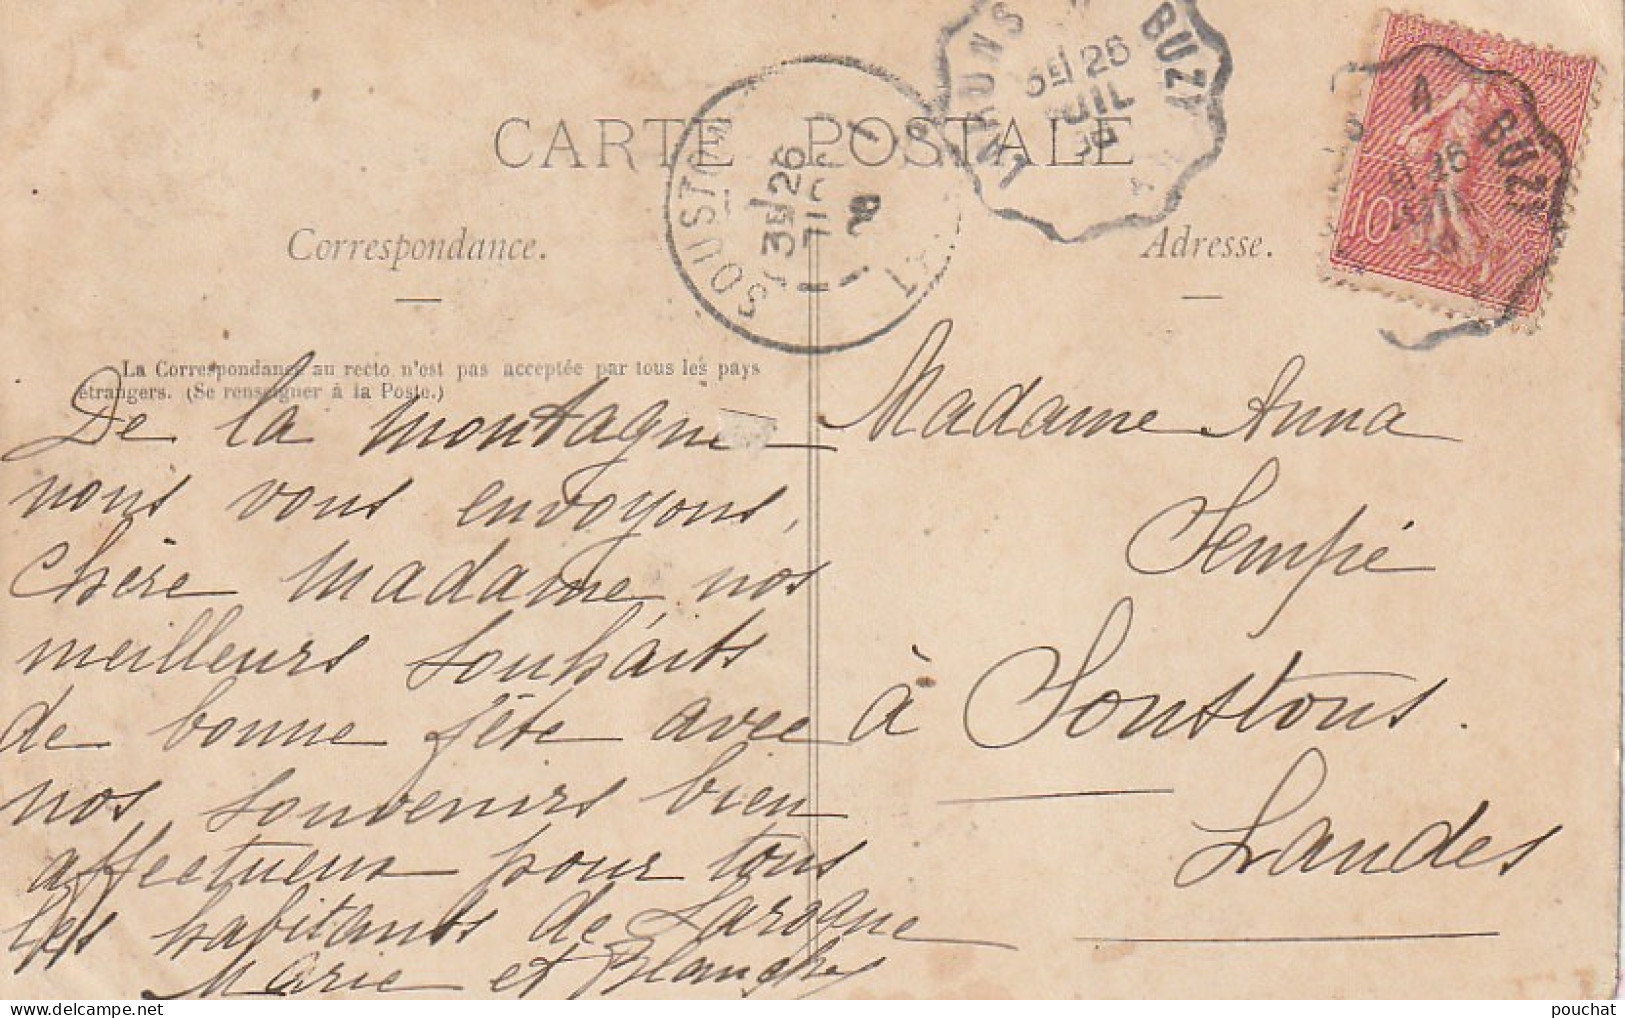 CARTE POSTALE
Correspondance.
Adresse.
La Correspondance au recto n'est pas acceptée par tous les pays
étrangers. (Se renseigner à la Poste.)
De la montagne
nous vous envoyons,
chère madame nos
meilleurs souhaits
de bonne fête avec
nos souvenirs bien
affectueux pour tous
les habitants de
Marie et Blanche
Madame Anna
Sempé
à Soustons.
Landes
LARUNS A BUZY
26
JUIL
SOUSTONS
26
A BUZY
26
10
delcampe.net
pouchat